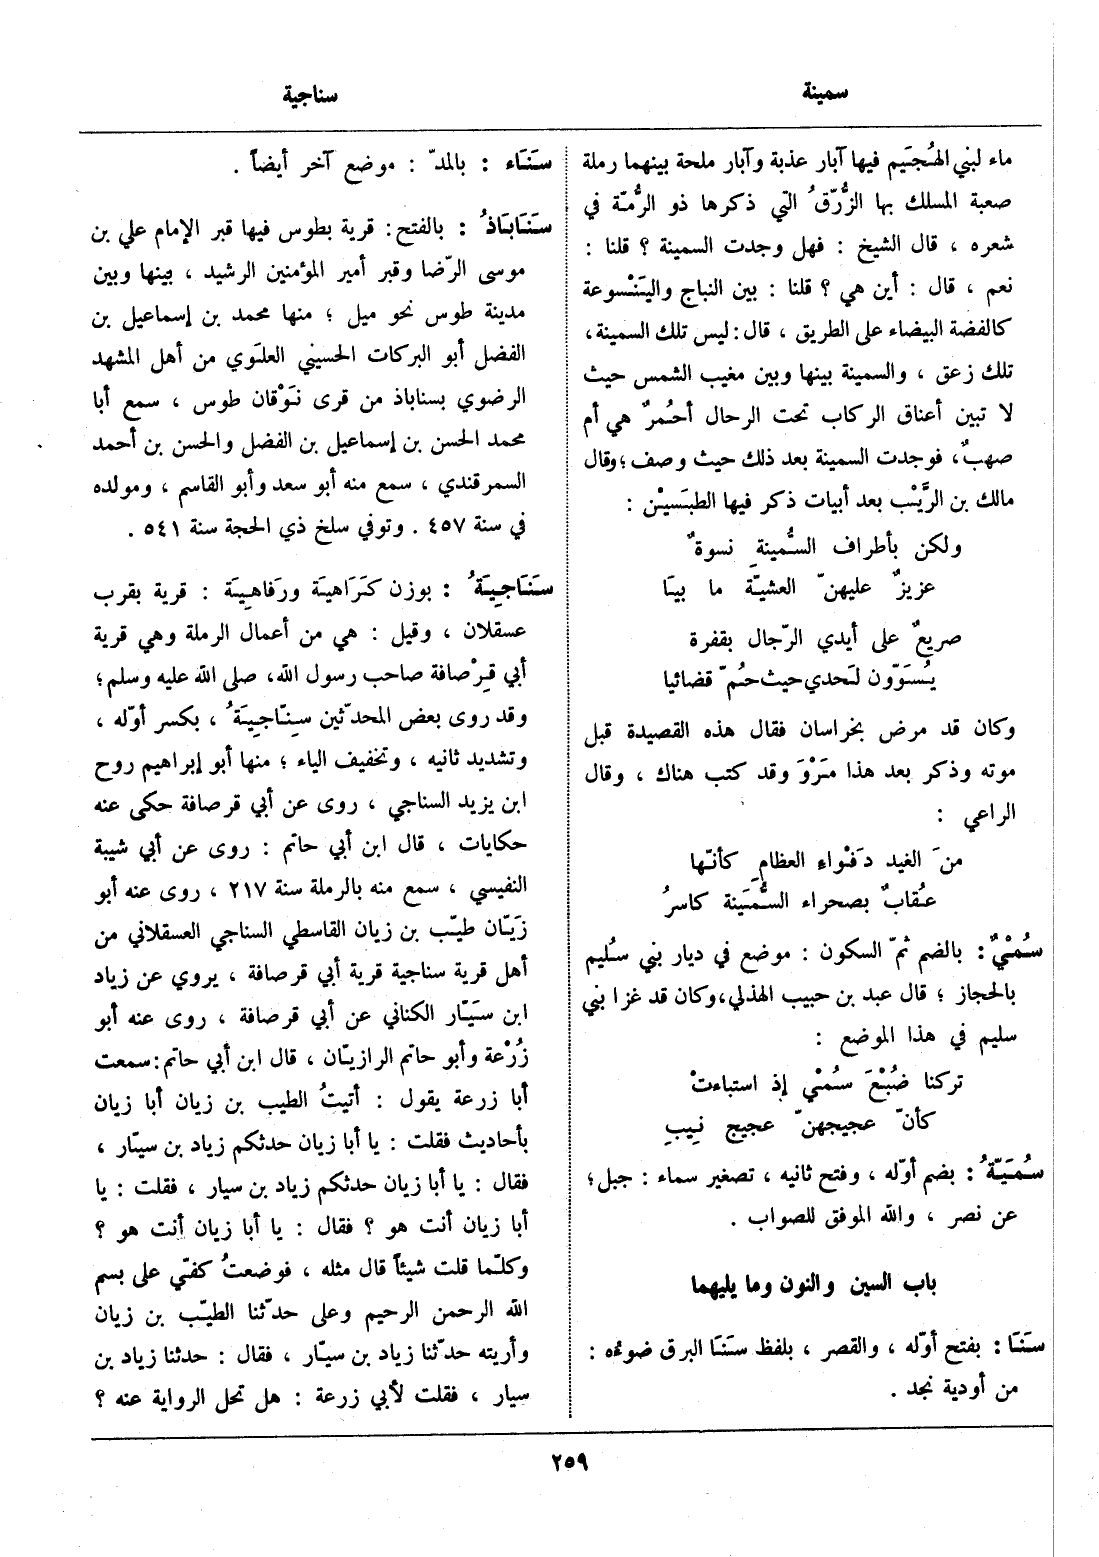 سمينة
سناجية
ماء لبني الهُجَيم فيها آبار عذبة وآبار ملحة بينهما رملة
صعبة المسلك بها الزُّرّقُ التي ذكرها ذو الرُّمّة في
شعره ، قال الشيخ : فهل وجدت السمينة ؟ قلنا :
نعم ، قال : أين هي ؟ قلنا : بين النباج والينْسوعة
كالفضة البيضاء على الطريق ، قال : ليس تلك السمينة ،
تلك زعق ، والسمينة بينها وبين مغيب الشمس حيث
لا تبين أعناق الركاب تحت الرحال أحُمرٌ هي أم
صهبٌ ، فوجدت السمينة بعد ذلك حيث وصف ؛ وقال
مالك بن الرَّيْب بعد أبيات ذكر فيها الطبَسيْن :
ولكن بأطراف السُّمينةِ نسوةٌ
عزيزٌ عليهنّ العشيّة ما بيَا
صريعٌ على أيدي الرّجال بقفرة
يُسَوّون لَحدي حيث حُمّ قضائيا
وكان قد مرض بخراسان فقال هذه القصيدة قبل
موته وذكر بعد هذا مَرْوَ وقد كتب هناك ، وقال
الراعي :
منَ الغيد دَفْواء العظامِ كأنّها
عُقابٌ بصحراء السُّمَينة كاسرُ
سُمْيٌ : بالضم ثمّ السكون : موضع في ديار بني سُليم
بالحجاز ؛ قال عبد بن حبيب الهذلي ، وكان قد غزا بني
سليم في هذا الموضع :
تركنا ضُبْعَ سُمْي إذ استباءتْ
كأنّ عجيجهنّ عجيج نِيبِ
سُمَيّةُ : بضم أوّله ، وفتح ثانيه ، تصغير سماء : جبل ؛
عن نصر ، والله الموفق للصواب .
باب السين والنون وما يليهما
سَنَا : بفتح أوّله ، والقصر ، بلفظ سَنَا البرق ضوءه :
من أودية نجد .
سَنَاء : بالمدّ : موضع آخر أيضاً .
سَنَابَاذُ : بالفتح : قرية بطوس فيها قبر الإمام علي بن
موسى الرّضا وقبر أمير المؤمنين الرشيد ، بينها وبين
مدينة طوس نحو ميل ؛ منها محمد بن إسماعيل بن
الفضل أبو البركات الحسيني العلَوي من أهل المشهد
الرضوي بسناباذ من قرى نَوْقان طوس ، سمع أبا
محمد الحسن بن إسماعيل بن الفضل والحسن بن أحمد
السمرقندي ، سمع منه أبو سعد وأبو القاسم ، ومولده
في سنة ٤٥٧ . وتوفي سلخ ذي الحجة سنة ٥٤١ .
سَنَاجِيَةُ : بوزن كَرَاهيَة ورَفاهِيَة : قرية بقرب
عسقلان ، وقيل : هي من أعمال الرملة وهي قرية
أبي قِرْصافة صاحب رسول الله ، صلى الله عليه وسلم ؛
وقد روى بعض المحدّثين سِنّاجِيَةُ ، بكسر أوّله ،
وتشديد ثانيه ، وتخفيف الياء ؛ منها أبو إبراهيم روح
ابن يزيد السناجي ، روى عن أبي قرصافة حكى عنه
حكايات ، قال ابن أبي حاتم : روى عن أبي شيبة
النفيسي ، سمع منه بالرملة سنة ٢١٧ ، روى عنه أبو
زَيّان طيّب بن زيان القاسطي السناجي العسقلاني من
أهل قرية سناجية قرية أبي قرصافة ، يروي عن زياد
ابن سَيّار الكناني عن أبي قرصافة ، روى عنه أبو
زُرْعة وأبو حاتم الرازيّان ، قال ابن أبي حاتم : سمعت
أبا زرعة يقول : أتيتُ الطيب بن زيان أبا زيان
بأحاديث فقلت : يا أبا زيان حدثكم زياد بن سيّار ،
فقال : يا أبا زيان حدثكم زياد بن سيار ، فقلت : يا
أبا زيان أنت هو ؟ فقال : يا أبا زيان أنت هو ؟
وكلّما قلت شيئاً قال مثله ، فوضعتُ كفّي على بسم
الله الرحمن الرحيم وعلى حدّثنا الطيّب بن زيان
وأريته حدّثنا زياد بن سيّار ، فقال : حدثنا زياد بن
سيار ، فقلت لأبي زرعة : هل تحل الرواية عنه ؟
٢٥٩